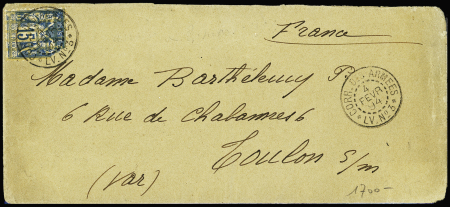 France
Madame Barthélemy P.
6 Rue de Chabannes 6
Toulon s/m
(Var)
CORR. DES ARMEES
4
FEVR
94
* LV. No 3 *
15
LV. No 3
1700-